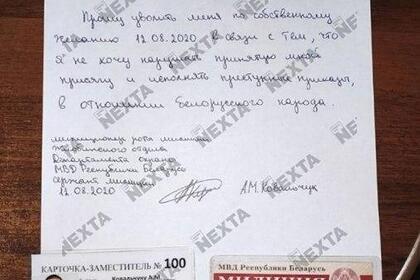 Прошу уволить меня по собственному
желанию 12.08.2020 в связи с тем, что
я не хочу нарушать принятую мной
присягу и исполнять преступные приказы,
в отношении Белорусского народа.
милиционер роты милиции
отдела
Департамента охраны
МВД Республики Беларусь
сержант милиции
12.08.2020
А.М. Ковальчук
NEXTA
КАРТОЧКА-ЗАМЕСТИТЕЛЬ № 100
Ковальчуку А.М
МВД Республики Беларусь
МИЛИЦИЯ